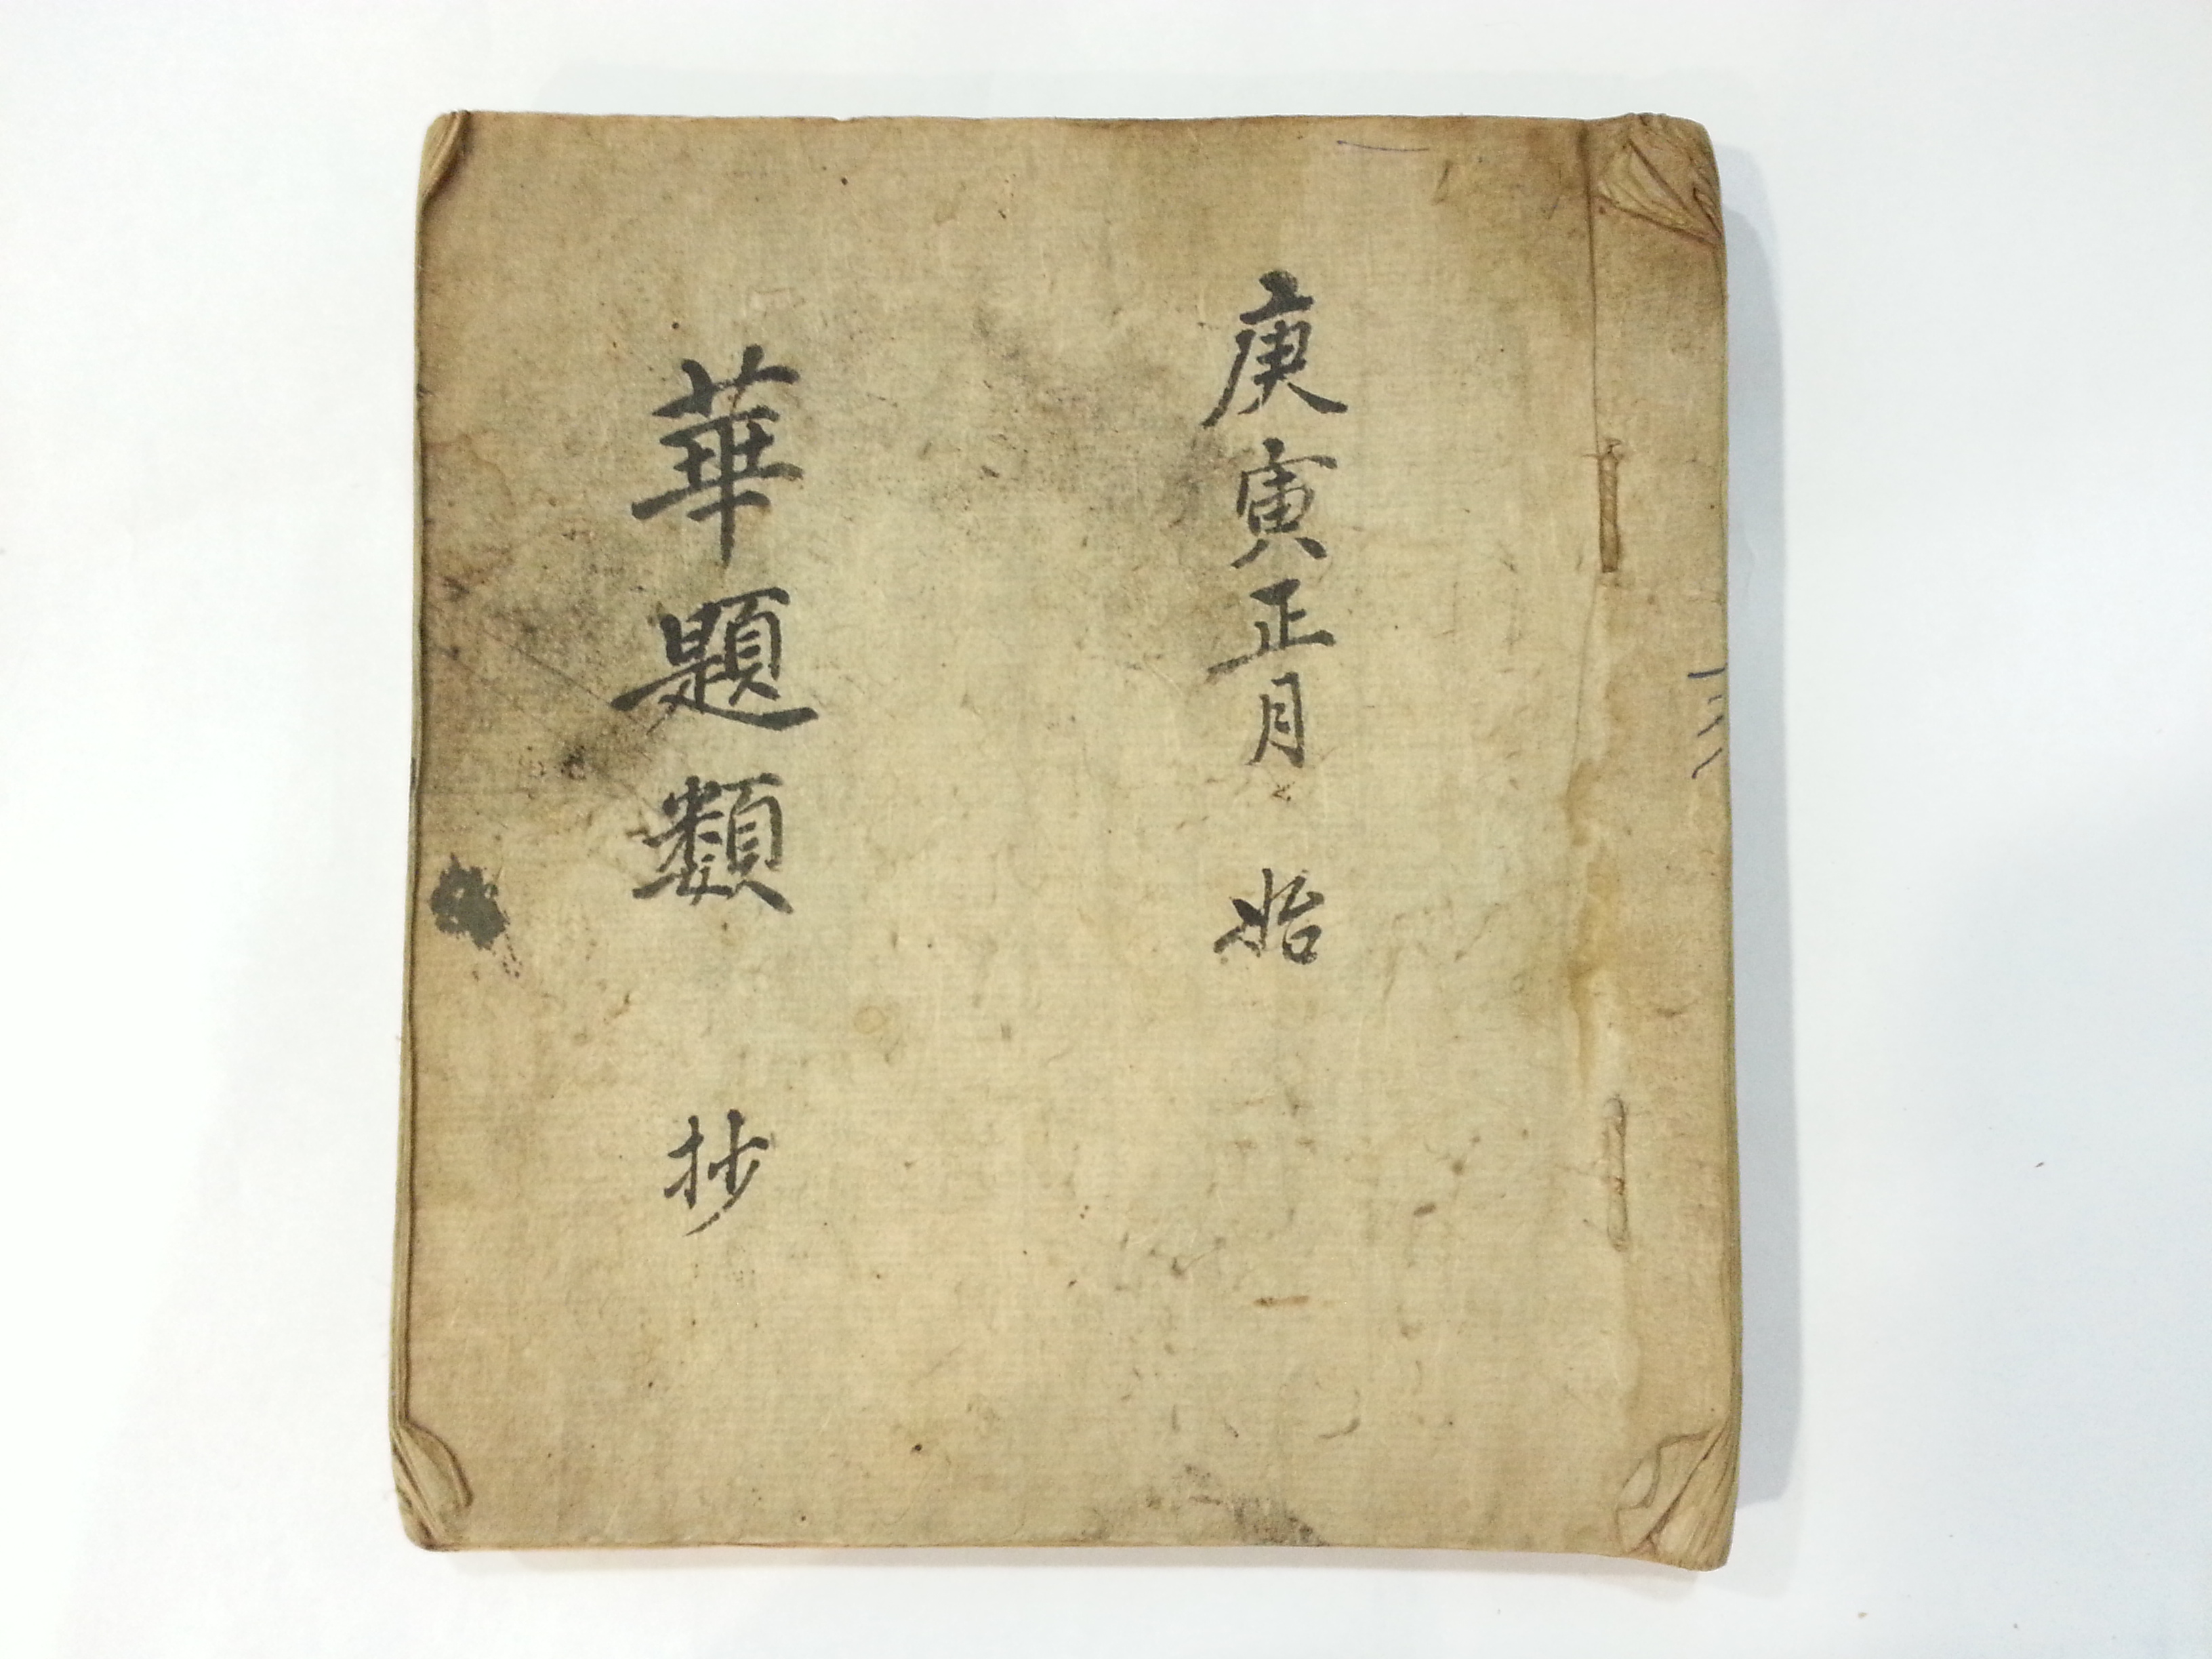 庚寅正月 始
華題類 抄